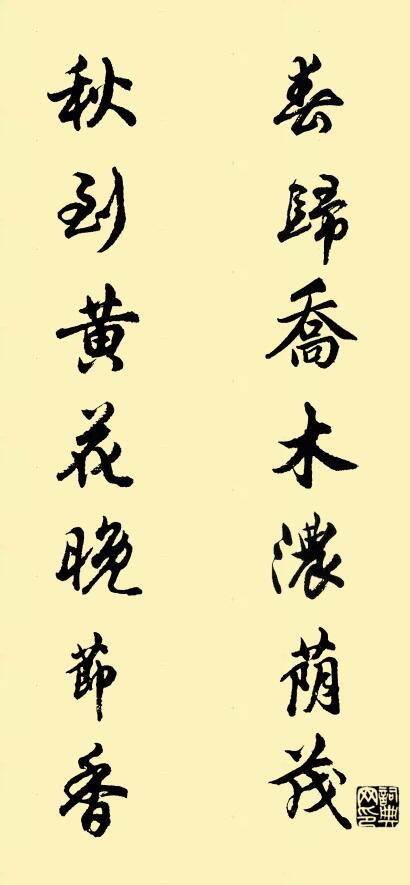 春歸喬木濃蔭茂
秋到黄花晚節香
詞典網印